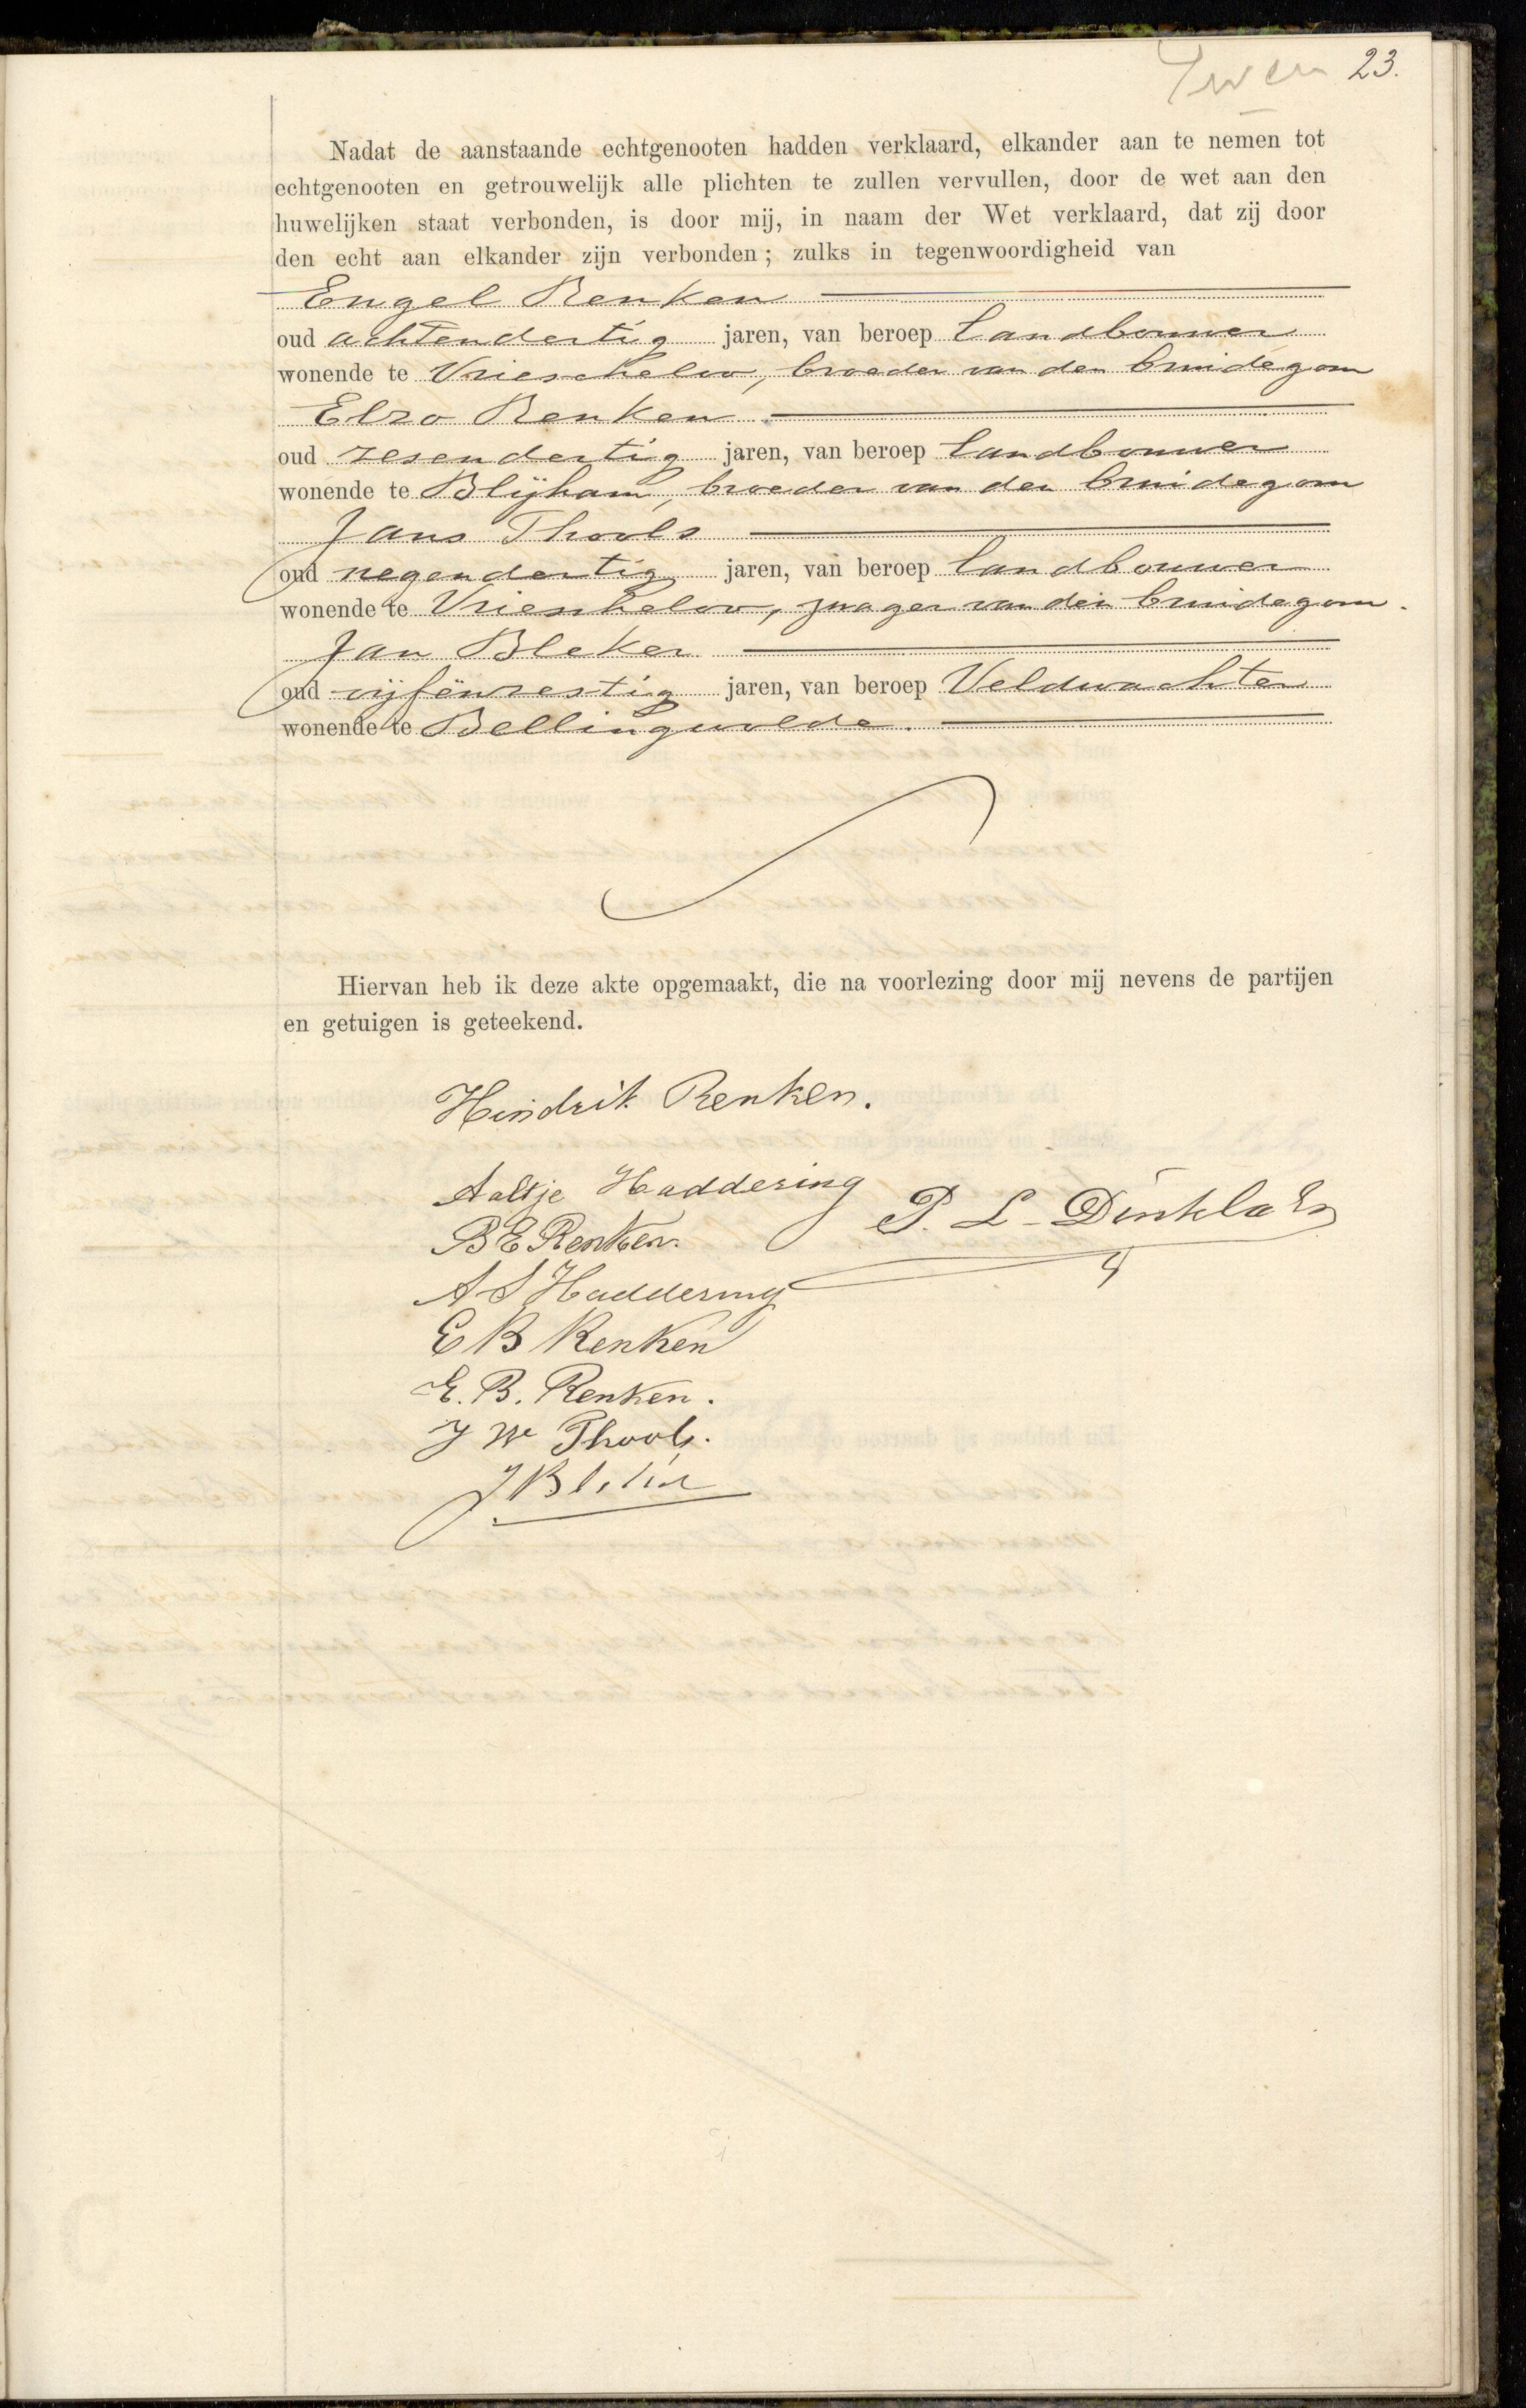 23.
Nadat de aanstaande echtgenooten hadden verklaard, elkander aan te nemen tot
echtgenooten en getrouwelijk alle plichten te zullen vervullen, door de wet aan den
huwelijken staat verbonden, is door mij, in naam der Wet verklaard, dat zij door
den echt aan elkander zijn verbonden; zulks in tegenwoordigheid van
Engel Renken
oud achtendertig jaren, van beroep Landbouwer
wonende te Vriescheloo, broeder van den bruidegom
Elzo Renken
oud zesendertig jaren, van beroep Landbouwer
wonende te Blijham, broeder van den bruidegom
Jans Thools
oud negendertig jaren, van beroep Landbouwer
wonende te Vriescheloo, zwager van den bruidegom.
Jan Bleker
oud vijfënzestig jaren, van beroep Veldwachter
wonende te Bellingwolde.
Hiervan heb ik deze akte opgemaakt, die na voorlezing door mij nevens de partijen
en getuigen is geteekend.
Hindrik Renken.
Aaltje Haddering
P. L. Dinkla
B E Renken.
A S Haddering
E B Renken
E. B. Renken.
J W Thools.
J Bleker